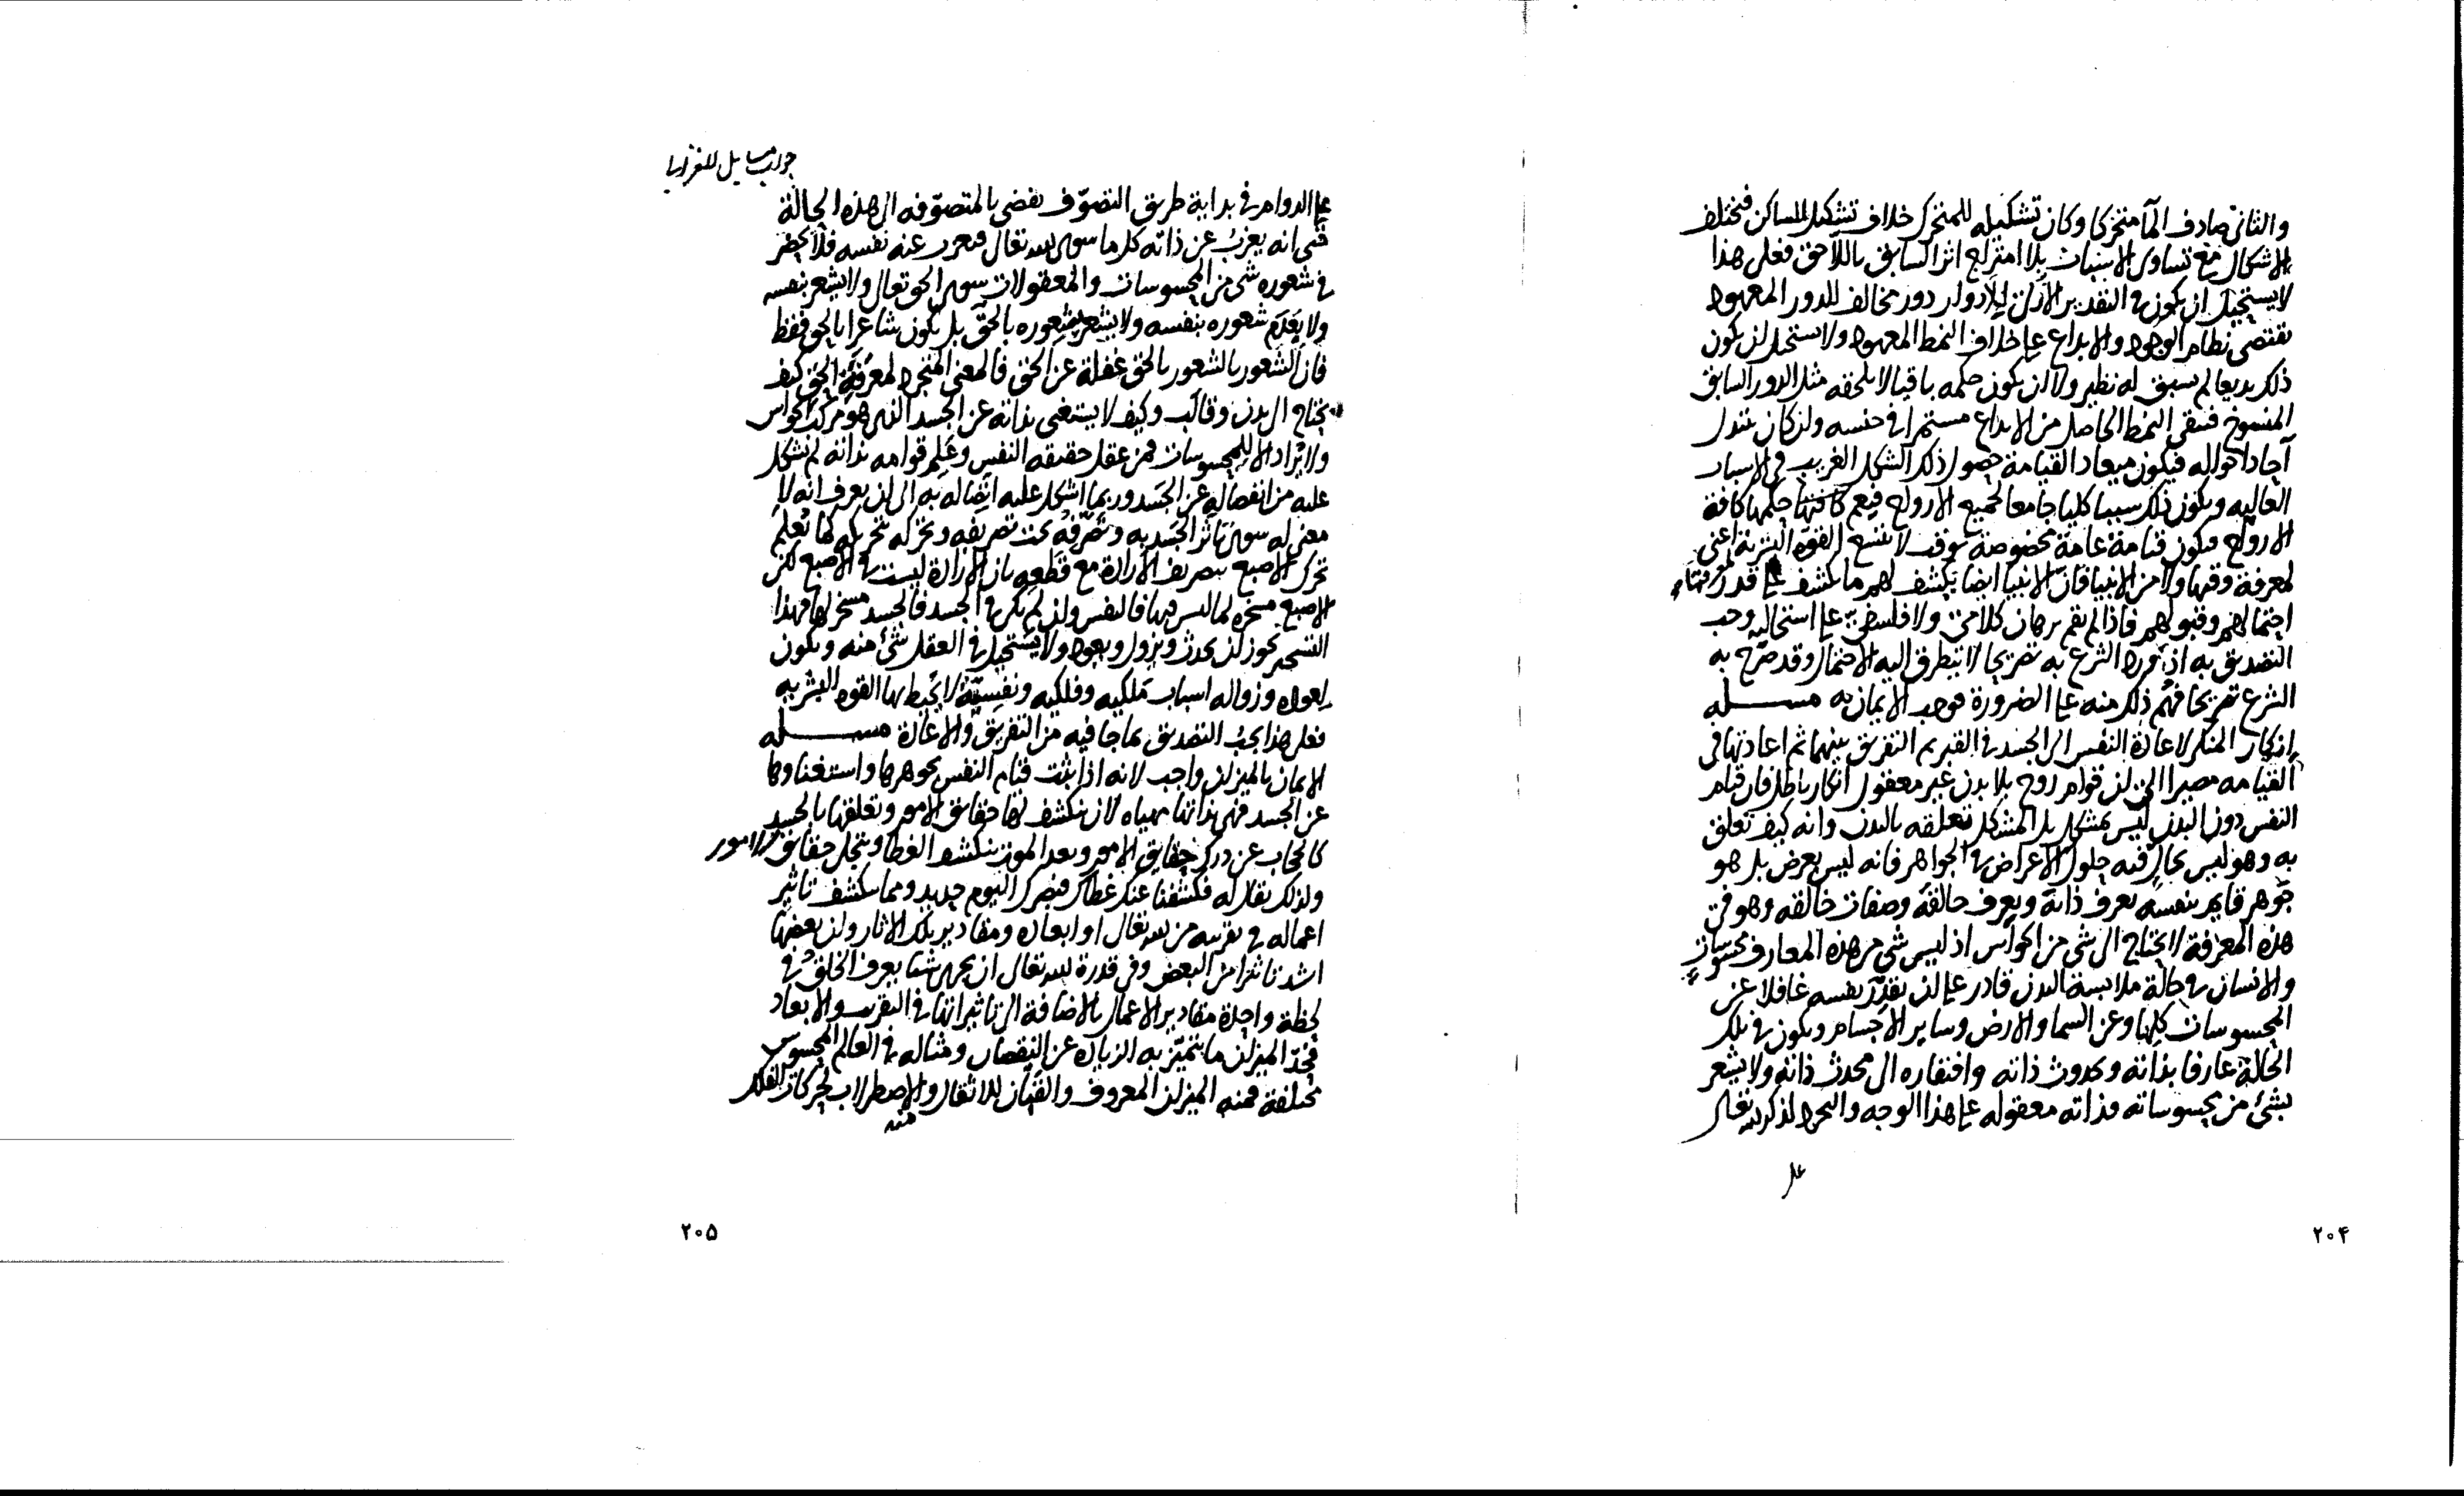 والثاني صادف الما متحركا وكان تشكيله للمتحرك خلاف تشكيل الساكن فيختلف
الاشكال مع تساوى الاسباب بلا امتزاج اثر السابق باللاحق فعلى هذا
لا يستحيل ان يكون فى التقدير الازلى للادوار دور مخالف للدور المعهود
يقتضى نظام الوجود والابداع على خلاف النمط المعهود ولا استحيل ان يكون
ذلك بديعا لم يسبق له نظير ولا ان يكون حكمه باقيا لا يلحقه مثل الدور السابق
المنسوخ فيبقى النمط الحاصل من الابداع مستمرا فى جنسه وان كان تبدل
آحاد احواله فيكون ميعاد القيامة حصول ذلك الشكل الغريب فى الاسباب
العاليه ويكون ذلك سببا كليا جامعا لجميع الارواح فيعم حكمها كافة
الارواح فيكون قيامة عامة مخصوصة بوقت لا تتسع القوة البشرية اعنى
لمعرفة وقتها ولا من الانبيا فان الانبيا ايضا يكشف لهم ما يكشف على قدر
احتمالهم وقبولهم فاذا لم يقم برهان كلامى ولا فلسفى على استحاليه وجب
التصديق به اذ ورد الشرع به تصريحا لا يتطرق اليه الاحتمال وقد صرح به
الشرع تصريحا فهم ذلك منه على الضرورة فوجب الايمان به مسـله
انكار المنكر لاعادة النفس الى الجسد فى القبر ثم التفريق بينهما ثم اعادتها فى
القيامه مصيرا الى ان قوام روح بلا بدن غير معقول انكار باطل فان قيام
النفس دون البدن ليس بمشكل بل المشكل تعلقه بالبدن وانه كيف تعلق
به وهو ليس بحال فيه حلول الاعراض فى الجواهر فانه ليس بعرض بل هو
جوهر قايم بنفسه يعرف ذاته ويعرف خالقه وصفات خالقه وهو فى
هذه المعرفة لا يحتاج الى شى من الحواس اذ ليس شى من هذه المعارف محسوسات
والانسان فى حالة ملابسة البدن قادر على ان يقدر نفسه غافلا عن
المحسوسات كلها وعن السما والارض وساير الاجسام ويكون فى تلك
الحالة عارفا بذاته وبحدوث ذاته وافتقاره الى محدث ذاته ولا يشعر
بشئ من محسوساته فذاته معقوله على هذا الوجه والتجرد لذكر الله تعالى
على
۲۰۴
جواب مسايل للغزالى
على الدوام فى بداية طريق التصوف يفضى بالمتصوفه الى هذه الحالة
حتى انه يعزب عن ذاته كل ما سوى الله تعالى ويعزب عنه نفسه فلا يحضر
فى شعوره شى من المحسوسات والمعقولات سوى الحق تعالى ولا يشعر بنفسه
ولا بعدم شعوره بنفسه ولا يشعر بشعوره بالحق بل يكون شاعرا بالحق فقط
فان الشعور بالشعور بالحق غفلة عن الحق فالمعنى المتجرد لمعرفة الحق كيف
يحتاج الى بدن وقالب وكيف لا يستغنى بذاته عن الجسد الذى هو مركب الحواس
ولا يراد الا للمحسوسات فمن عقل حقيقه النفس وعلم قوامه بذاته لم يشكل
عليه من انفصاله عن الجسد وربما اشكل عليه اتصاله به الى ان يعرف انه لا
معنى له سوى تاثر الجسد به وتصرفه تحت تصريفه وتحركه بتحريكه كما تعلم
تحرك الاصبع بتصريف الارادة مع قطعه بان الارادة ليست فى الاصبع لكن
الاصبع مسخره لما ليس فيها فالنفس وان لم يكن فى الجسد فالجسد مسخر لها فهذا
التسخير يجوز ان يحدث ويزول ويعود ولا يستحيل فى العقل شئ منه ويكون
لعوده وزواله اسباب ملكيه وفلكيه ونفسية لا يحيط بها القوه البشريه
فعلى هذا يجب التصديق بما جا فيه من التفريق والاعادة مسـله
الايمان بالميزان واجب لانه اذا ثبت قيام النفس بجوهرها واستغناوها
عن الجسد فهى بذاتها مهياه لان ينكشف لها حقائق الامور وتعلقها بالجسد
كالحجاب عن درك حقايق الامور وبعد الموت ينكشف الغطا ويتجلى حقايق الامور
ولذلك يقال له فكشفنا عنك غطاك فبصرك اليوم حديد ومما يكشف تاثير
اعماله فى تقريبه من الله تعالى او ابعاده ومقادير تلك الاثار وان بعضها
اشد تاثيرا من البعض وفى قدرة الله تعالى ان يجرى شيا يعرف الخلق فى
لحظة واحدة مقادير الاعمال بالاضافة الى تاثيراتها فى التقريب والابعاد
فحد الميزان ما يتميز به الزيادة عن النقصان ومثاله فى العالم المحسوس
مختلفة فمنه الميزان المعروف والقبان للاثقال والاصطرلاب لحركات الفلك
منه
۲۰۵